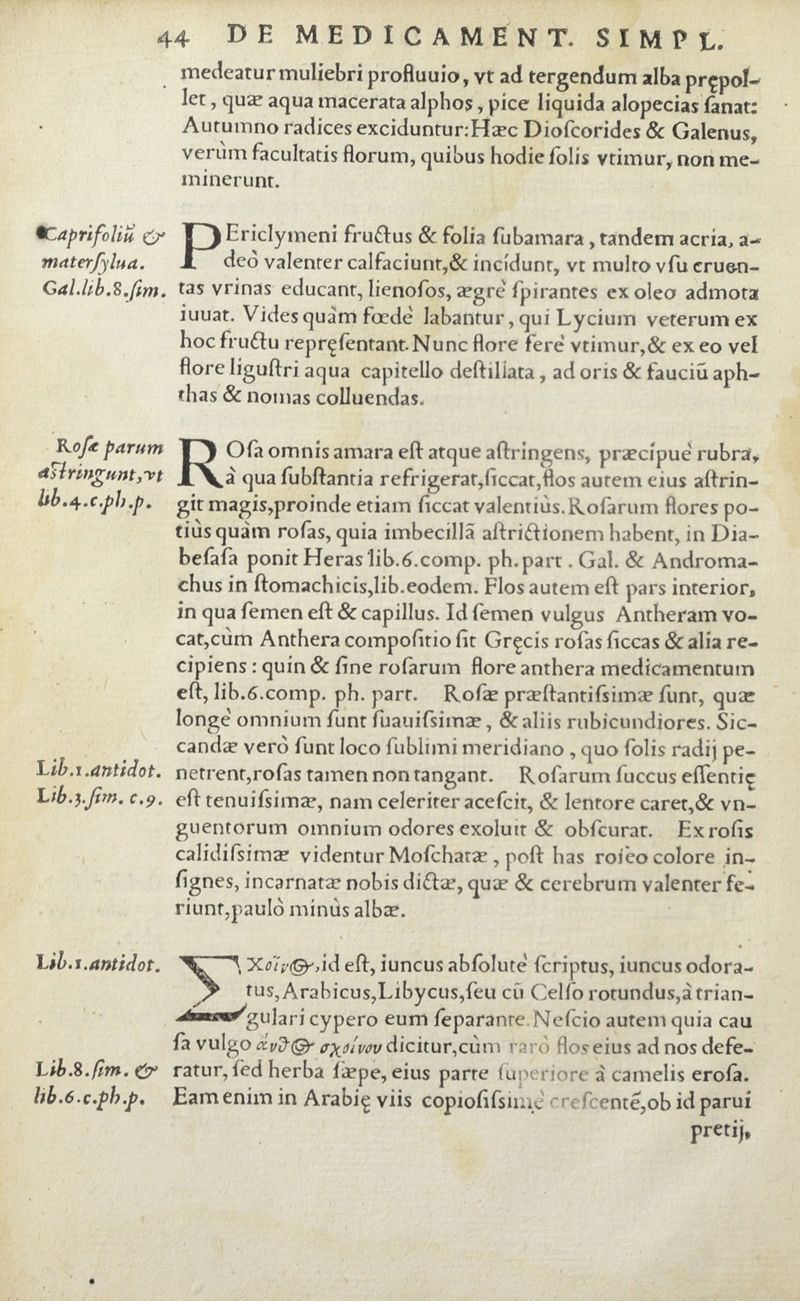 44 DE MEDICAMENT. SIMPL.
medeatur muliebri profluuio, vt ad tergendum alba prępol-
let, quæ aqua macerata alphos, pice liquida alopecias ſanat:
Autumno radices exciduntur: Hæc Dioſcorides & Galenus,
verùm facultatis florum, quibus hodie ſolis vtimur, non me-
minerunt.
Caprifoliũ &
materſylua.
Gal.lib.8.ſim.
PEriclymeni fructus & folia ſubamara, tandem acria, a-
deò valenter calfaciunt, & incídunt, vt multo vſu cruen-
tas vrinas educant, lienoſos, ægrè ſpirantes ex oleo admota
iuuat. Vides quàm fœdè labantur, qui Lycium veterum ex
hoc fructu repręſentant. Nunc flore ferè vtimur, & ex eo vel
flore liguſtri aqua capitello deſtillata, ad oris & fauciũ aph-
thas & nomas colluendas.
Roſæ parum
aſtringunt, vt
lib.4.c.ph.p.
ROſa omnis amara eſt atque aſtringens, præcipuè rubra,
à qua ſubſtantia refrigerat, ſiccat, flos autem eius aſtrin-
git magis, proinde etiam ſiccat valentiùs. Roſarum flores po-
tiùs quàm roſas, quia imbecillã aſtrictionem habent, in Dia-
beſaſa ponit Heras lib.6.comp. ph.part. Gal. & Androma-
chus in ſtomachicis, lib.eodem. Flos autem eſt pars interior,
in qua ſemen eſt & capillus. Id ſemen vulgus Antheram vo-
cat, cùm Anthera compoſitio ſit Gręcis roſas ſiccas & alia re-
cipiens: quin & ſine roſarum flore anthera medicamentum
eſt, lib.6.comp. ph. part. Roſæ præſtantiſsimæ ſunt, quæ
longè omnium ſunt ſuauiſsimæ, & aliis rubicundiores. Sic-
candæ verò ſunt loco ſublimi meridiano, quo ſolis radij pe-
netrent, roſas tamen non tangant. Roſarum ſuccus eſſentię
Lib.1.antidot.
Lib.3.ſim. c.9.
eſt tenuiſsimæ, nam celeriter aceſcit, & lentore caret, & vn-
guentorum omnium odores exoluit & obſcurat. Ex roſis
calidiſsimæ videntur Moſchatæ, poſt has roſeo colore in-
ſignes, incarnatæ nobis dictæ, quæ & cerebrum valenter fe-
riunt, paulò minùs albæ.
Lib.1.antidot.
ΣΧοῖνος, id eſt, iuncus abſolutè ſcriptus, iuncus odora-
tus, Arabicus, Libycus, ſeu cũ Celſo rotundus, à trian-
gulari cypero eum ſeparante. Neſcio autem quia cau
ſa vulgo ἄνθος σχοίνου dicitur, cùm rarò flos eius ad nos defe-
Lib.8.ſim. &
lib.6.c.ph.p.
ratur, ſed herba ſæpe, eius parte ſuperiore à camelis eroſa.
Eam enim in Arabię viis copioſiſsimè creſcentẽ, ob id parui
pretij,